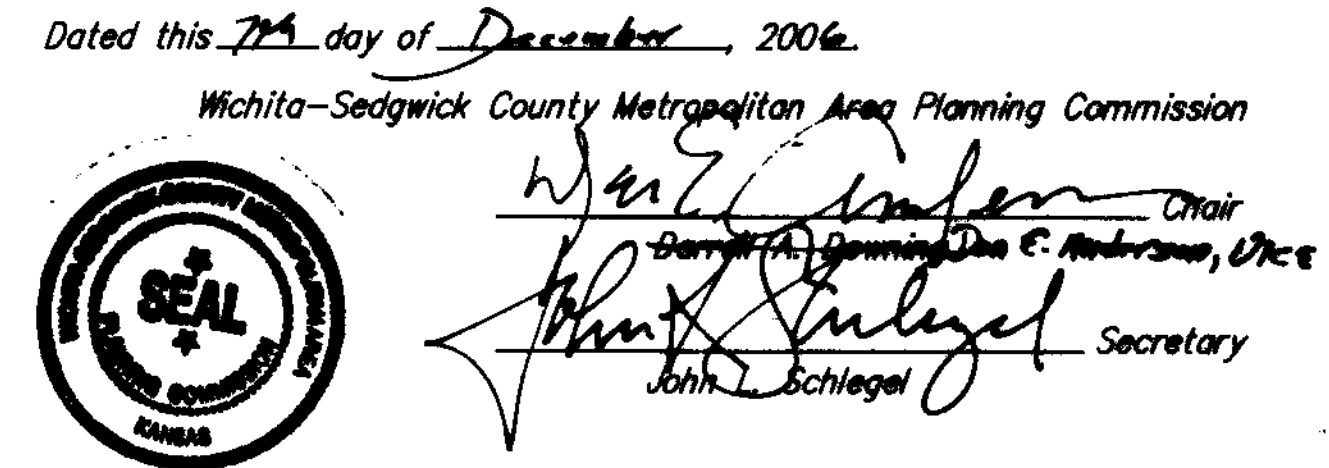 Dated this 7th day of December, 2006.
Wichita-Sedgwick County Metropolitan Area Planning Commission
Chair
Darrell A. Downing Don E. Anderson, Vice
John L. Schlegel Secretary
John L. Schlegel
SEAL
PLANNING COMMISSION
KANSAS